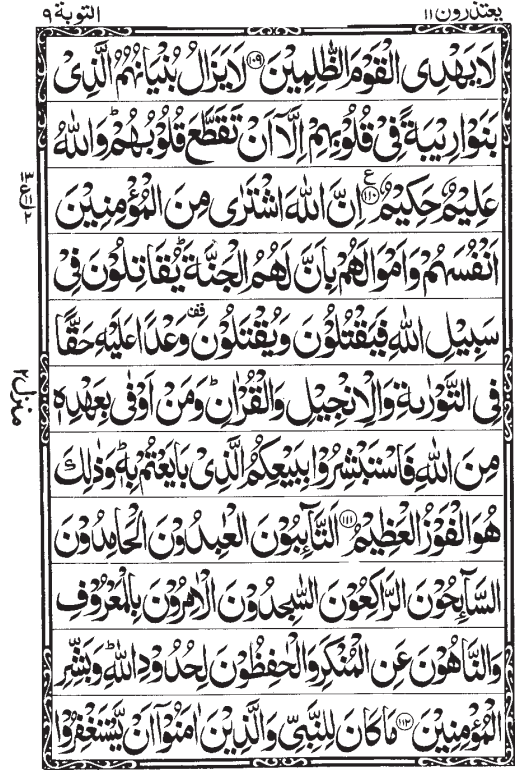 يعتذرون ١١ التوبة ٩
لَا يَهْدِى الْقَوْمَ الظّٰلِمِيْنَ ﴿۱۰۹﴾ لَا يَزَالُ بُنْيَانُهُمُ الَّذِىْ
بَنَوْا رِيْبَةً فِىْ قُلُوْبِهِمْ اِلَّاۤ اَنْ تَقَطَّعَ قُلُوْبُهُمْ ؕ وَاللّٰهُ
عَلِيْمٌ حَكِيْمٌ ﴿۱۱۰﴾ ع اِنَّ اللّٰهَ اشْتَرٰى مِنَ الْمُؤْمِنِيْنَ
اَنْفُسَهُمْ وَاَمْوَالَهُمْ بِاَنَّ لَهُمُ الْجَنَّةَ ؕ يُقَاتِلُوْنَ فِىْ
سَبِيْلِ اللّٰهِ فَيَقْتُلُوْنَ وَيُقْتَلُوْنَ قف وَعْدًا عَلَيْهِ حَقًّا
فِى التَّوْرٰٮةِ وَالْاِنْجِيْلِ وَالْقُرْاٰنِ ؕ وَمَنْ اَوْفٰى بِعَهْدِهٖ
مِنَ اللّٰهِ فَاسْتَبْشِرُوْا بِبَيْعِكُمُ الَّذِىْ بَايَعْتُمْ بِهٖ ؕ وَذٰلِكَ
هُوَ الْفَوْزُ الْعَظِيْمُ ﴿۱۱۱﴾ اَلتَّاۤٮِٕبُوْنَ الْعٰبِدُوْنَ الْحَامِدُوْنَ
السَّاۤٮِٕحُوْنَ الرَّاكِعُوْنَ السّٰجِدُوْنَ الْاٰمِرُوْنَ بِالْمَعْرُوْفِ
وَالنَّاهُوْنَ عَنِ الْمُنْكَرِ وَالْحٰفِظُوْنَ لِحُدُوْدِ اللّٰهِ ؕ وَبَشِّرِ
الْمُؤْمِنِيْنَ ﴿۱۱۲﴾ مَا كَانَ لِلنَّبِىِّ وَالَّذِيْنَ اٰمَنُوْاۤ اَنْ يَّسْتَغْفِرُوْا
منزل ٢